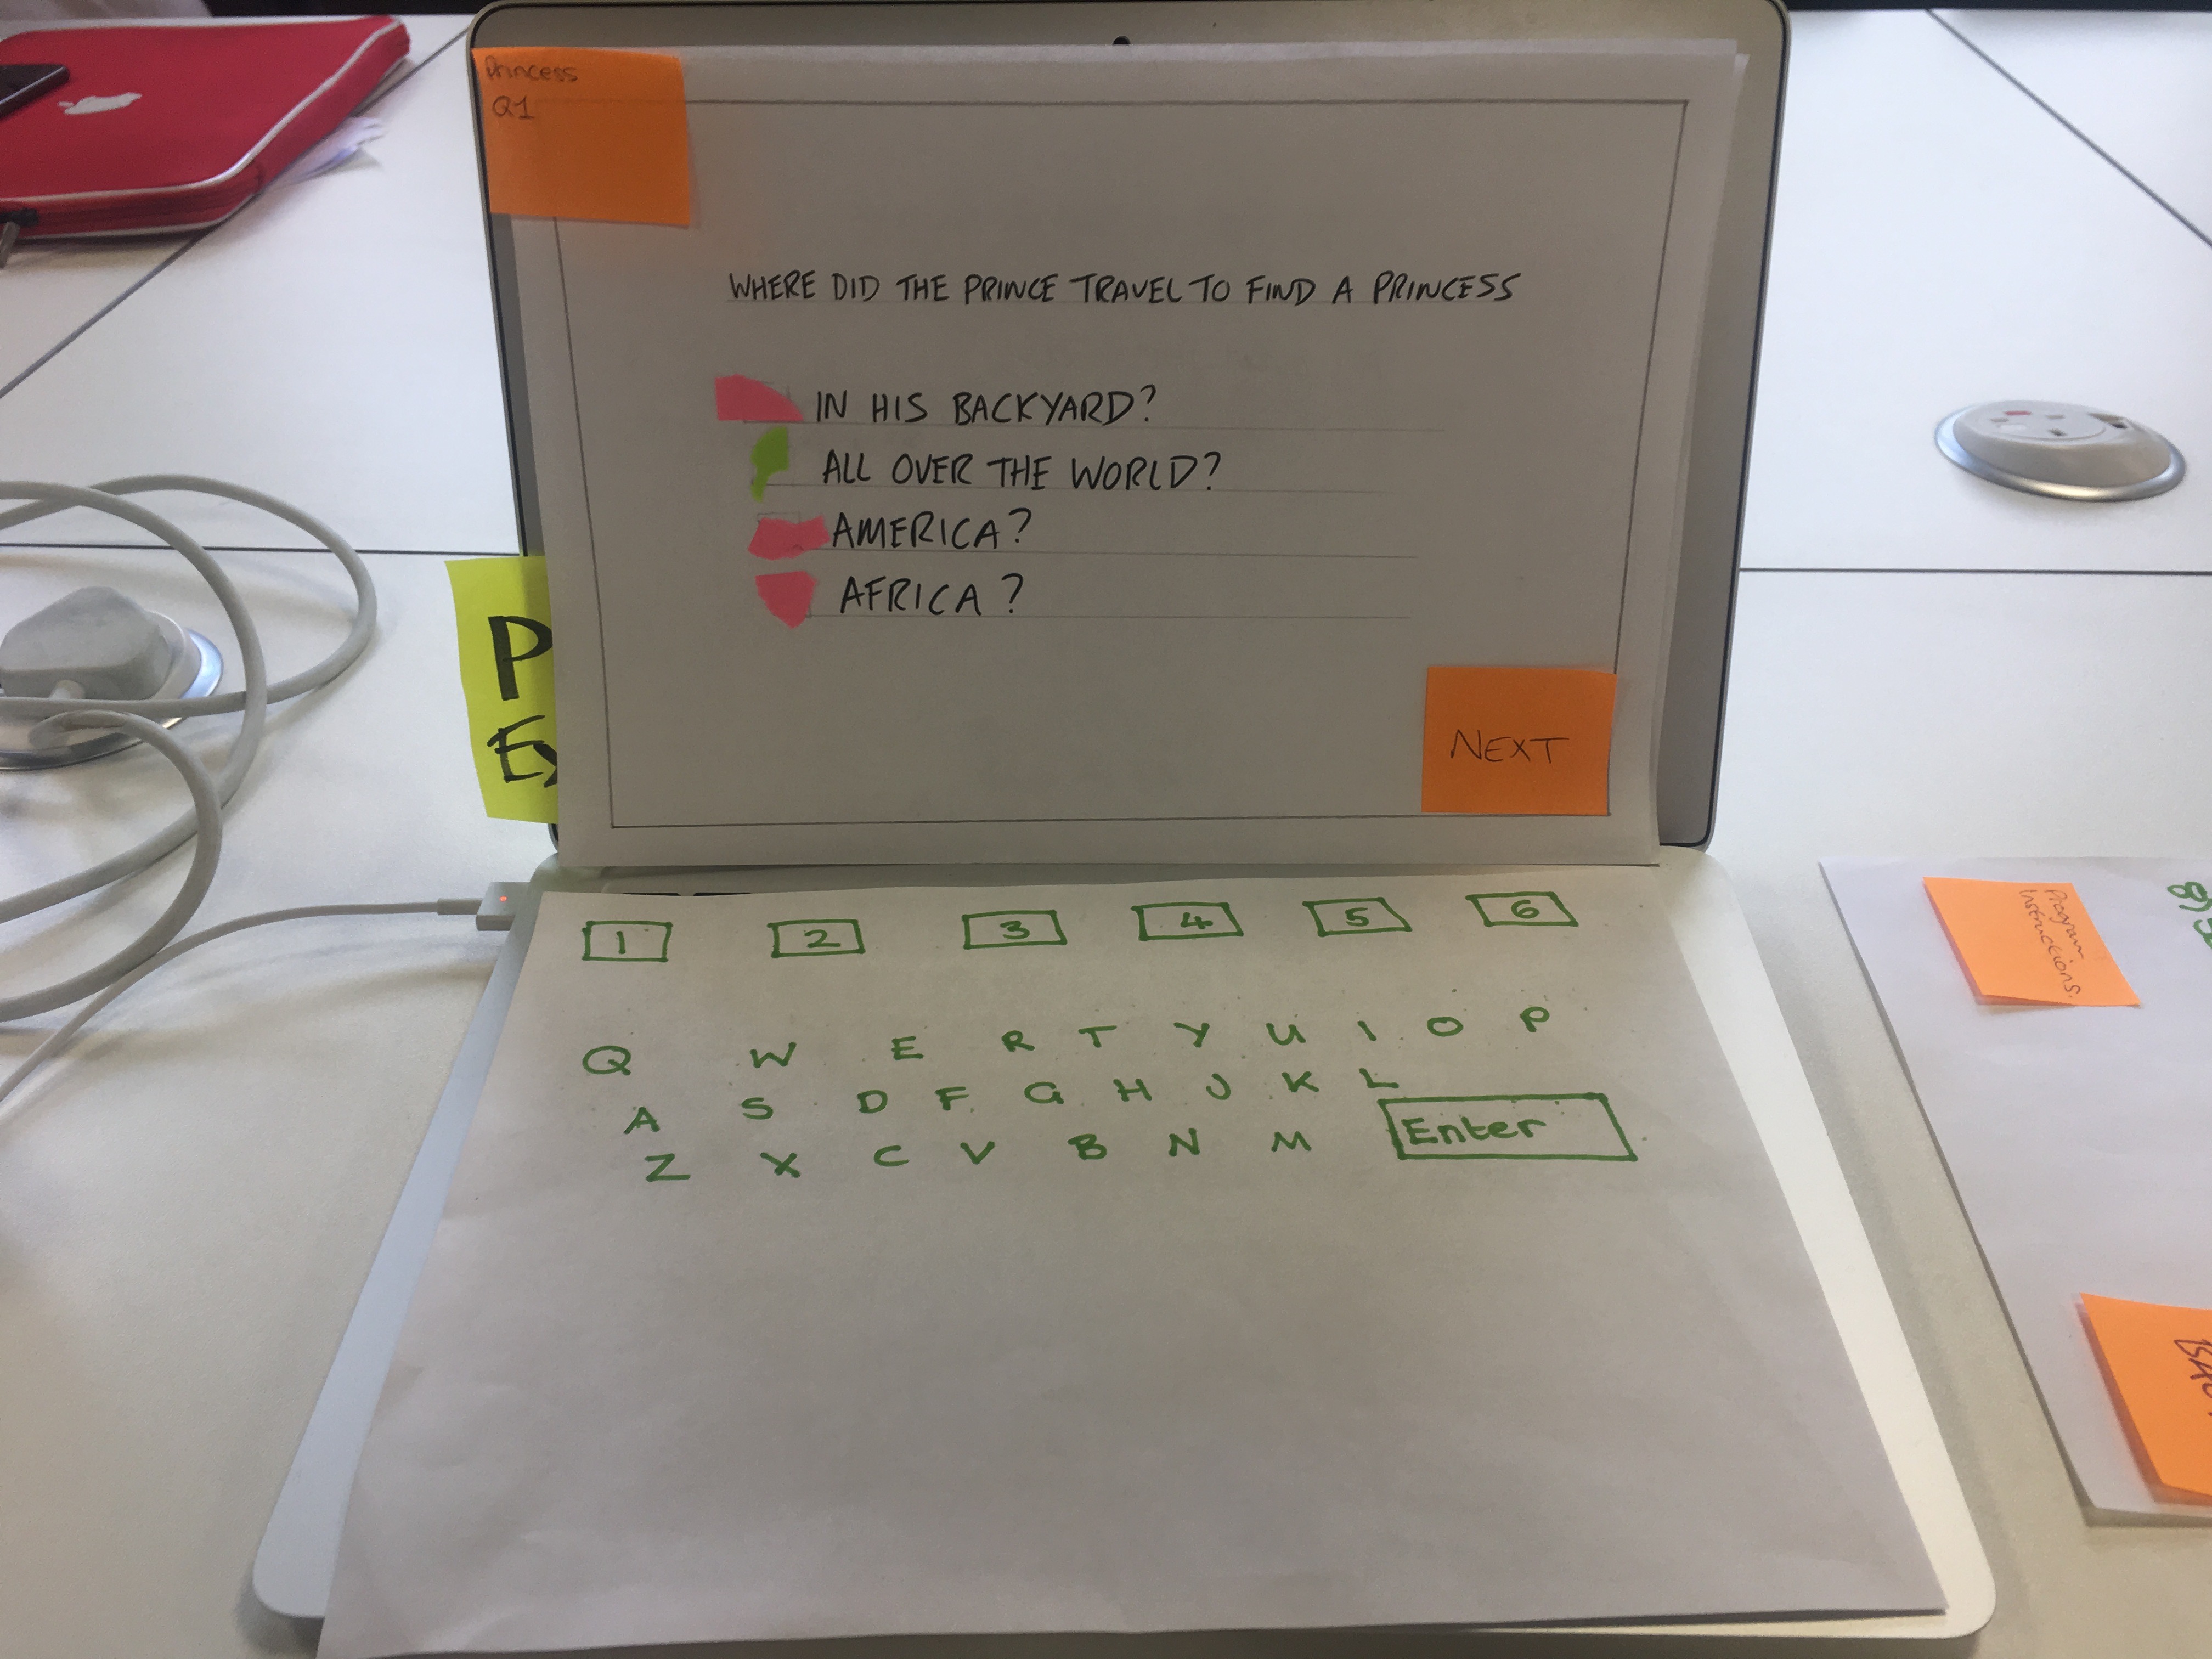 Princess
Q1
WHERE DID THE PRINCE TRAVEL TO FIND A PRINCESS
IN HIS BACKYARD?
ALL OVER THE WORLD?
AMERICA?
AFRICA?
NEXT
P
Ex
1 2 3 4 5 6
Q W E R T Y U I O P
A S D F G H J K L
Z X C V B N M Enter
Program
Instructions.